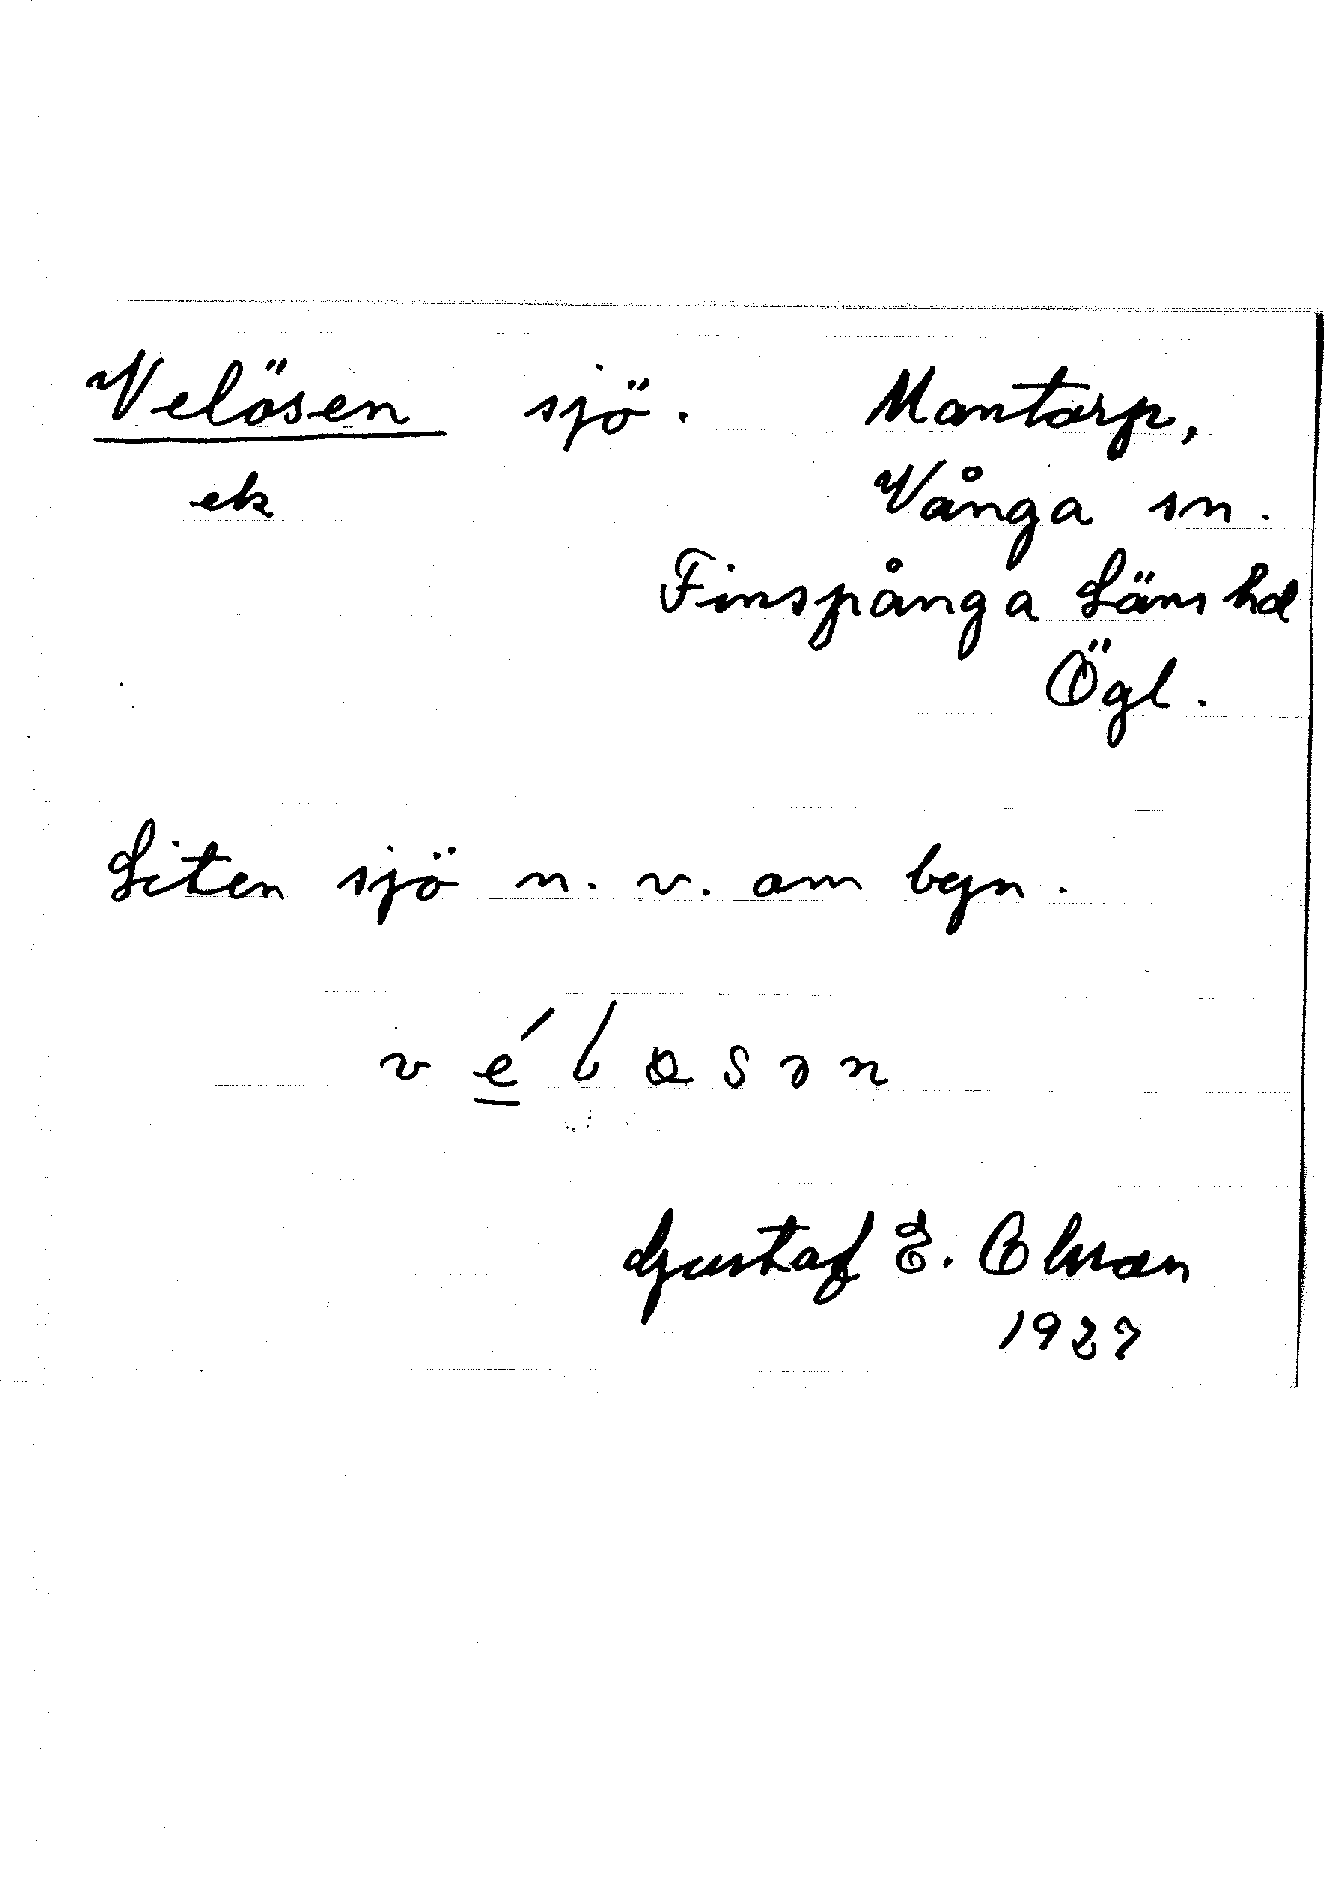 Velösen sjö. Mantorp,
ek Vånga sn.
Finspånga Läns hd
Ögl.
Liten sjö n. v. om byn.
Gustaf E. Olsson
1927